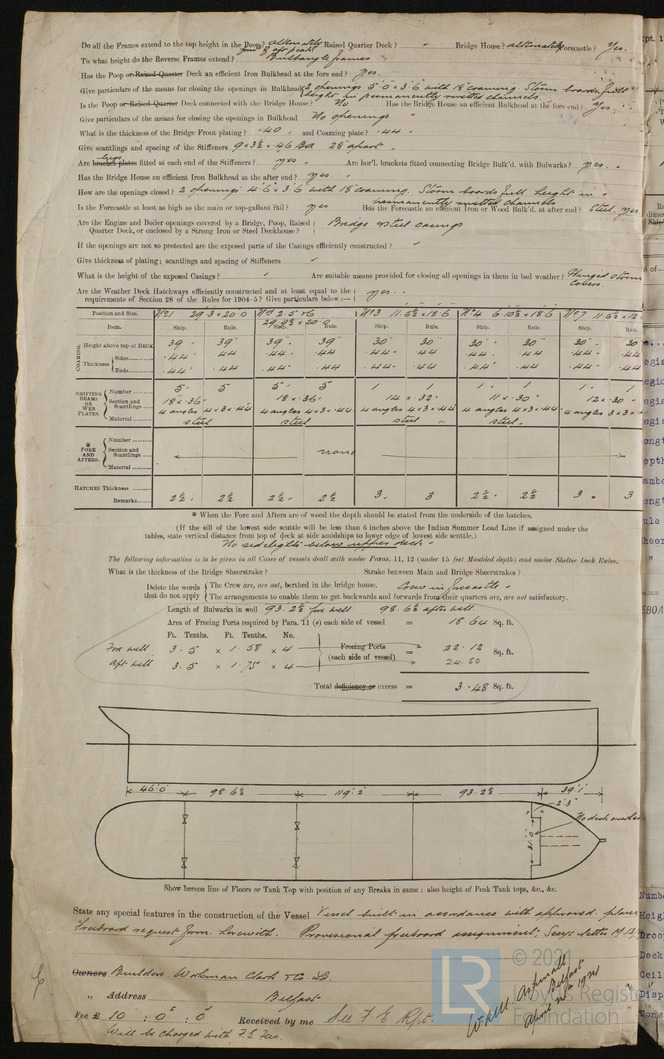 Do all the Frames extend to the top height in the Poop? alternately Raised Quarter Deck? " Bridge House? alternately Forecastle? Yes.
To what height do the Reverse Frames extend? Bulbangle frames
Has the Poop or Raised Quarter Deck an efficient Iron Bulkhead at the fore end? yes
Give particulars of the means for closing the openings in Bulkhead 2 openings 5'0 x 3'6 with 18" coaming. Storm boards full
height in permanently rivetted channels.
Is the Poop or Raised Quarter Deck connected with the Bridge House? No Has the Bridge House an efficient Bulkhead at the fore end? Yes.
Give particulars of the means for closing the openings in Bulkhead No openings
What is the thickness of the Bridge Front plating? .40 and Coaming plate? .44
Give scantlings and spacing of the Stiffeners 9 x 3½ x .46 BA 28" apart
Are bracket plates lugs fitted at each end of the Stiffeners? yes Are hor'l. brackets fitted connecting Bridge Bulk'd. with Bulwarks? yes.
Has the Bridge House an efficient Iron Bulkhead at the after end? yes.
How are the openings closed? 2 openings 4'6 x 3'6 with 18" coaming. Storm boards full height in
permanently rivetted channels
Is the Forecastle at least as high as the main or top-gallant rail? yes Has the Forecastle an efficient Iron or Wood Bulk'd. at after end? Steel. yes.
Are the Engine and Boiler openings covered by a Bridge, Poop, Raised Quarter Deck, or enclosed by a Strong Iron or Steel Deckhouse? Bridge & steel casings
If the openings are not so protected are the exposed parts of the Casings efficiently constructed?
Give thickness of plating; scantlings and spacing of Stiffeners
What is the height of the exposed Casings? Are suitable means provided for closing all openings in them in bad weather? Hinged storm
Covers
Are the Weather Deck Hatchways efficiently constructed and at least equal to the
requirements of Section 28 of the Rules for 1904-5? Give particulars below:— yes.
Position and Size. No 1 29.3 x 20.0 No 3 11.5½ x 18.6 No 4 6.10½ x 18.6 No 7
Item. Ship. Rule. Ship. Rule. Ship. Rule. Ship. Rule. Ship. Rule.
COAMING. Height above top of DECK 39 39 39 39 30 30 30 30 30 30
Thickness Sides .44 .44 .44 .44 .44 .44 .44 .44 .44 .44
Ends .44 .44 .44 .44 .44 .44 .44 .44 .44 .44
SHIFTING BEAMS OR WEB PLATES. Number 5 5 5 5 1 1 1 1 1 1
Section and Scantlings 18 x .36 18 x .36 14 x .32 11 x .30 12 x .30
4 angles 4 x 3 x .44 4 angles 4 x 3 x .44 4 angles 4 x 3 x .44 4 angles 4 x 3 x .44 4 angles
Material steel steel steel steel.
* FORE AND AFTERS. Number
Section and Scantlings none
Material
HATCHES Thickness
Remarks 2½ 2½ 2½ 2½ 3 3 2½ 2½ 3 3
* When the Fore and Afters are of wood the depth should be stated from the underside of the hatches.
(If the sill of the lowest side scuttle will be less than 6 inches above the Indian Summer Load Line if assigned under the
tables, state vertical distance from top of deck at side amidships to lower edge of lowest side scuttle.)
No sidelights below upper deck
The following information is to be given in all Cases of vessels dealt with under Paras. 11, 12 (under 15 feet Moulded depth) and under Shelter Deck Rules.
What is the thickness of the Bridge Sheerstrake? Strake between Main and Bridge Sheerstrakes?
Delete the words that do not apply The Crew are, are not, berthed in the bridge house. Crew in forecastle
The arrangements to enable them to get backwards and forwards from their quarters are, are not satisfactory.
Length of Bulwarks in well 93.2½ fore well 98.6½ after well
Area of Freeing Ports required by Para. 11 (e) each side of vessel = 18.64 Sq. ft.
Ft. Tenths. Ft. Tenths. No.
Fore well 3.5 x 1.58 x 4 Freeing Ports = 22.12 Sq. ft.
Aft well 3.5 x 1.75 x 4 (each side of vessel) = 24.50
Total deficiency or excess = 3.48 Sq. ft.
46'0 98'6½ 119'2 93'2½ 39'1
2'3
Show hereon line of Floors or Tank Top with position of any Breaks in same; also height of Peak Tank tops, &c., &c.
State any special features in the construction of the Vessel Vessel built in accordance with approved plans
Freeboard request form herewith. Provisional freeboard assignment: Secy's letter
Owners Builders Workman Clark & Co Ld.
" Address Belfast
Fee £ 10 : 0 : 0 Received by me See F.E. Rpt.
Will be charged with F.E. Fees.
Belfast
© 2021
Lloyd's Register
Foundation
LR